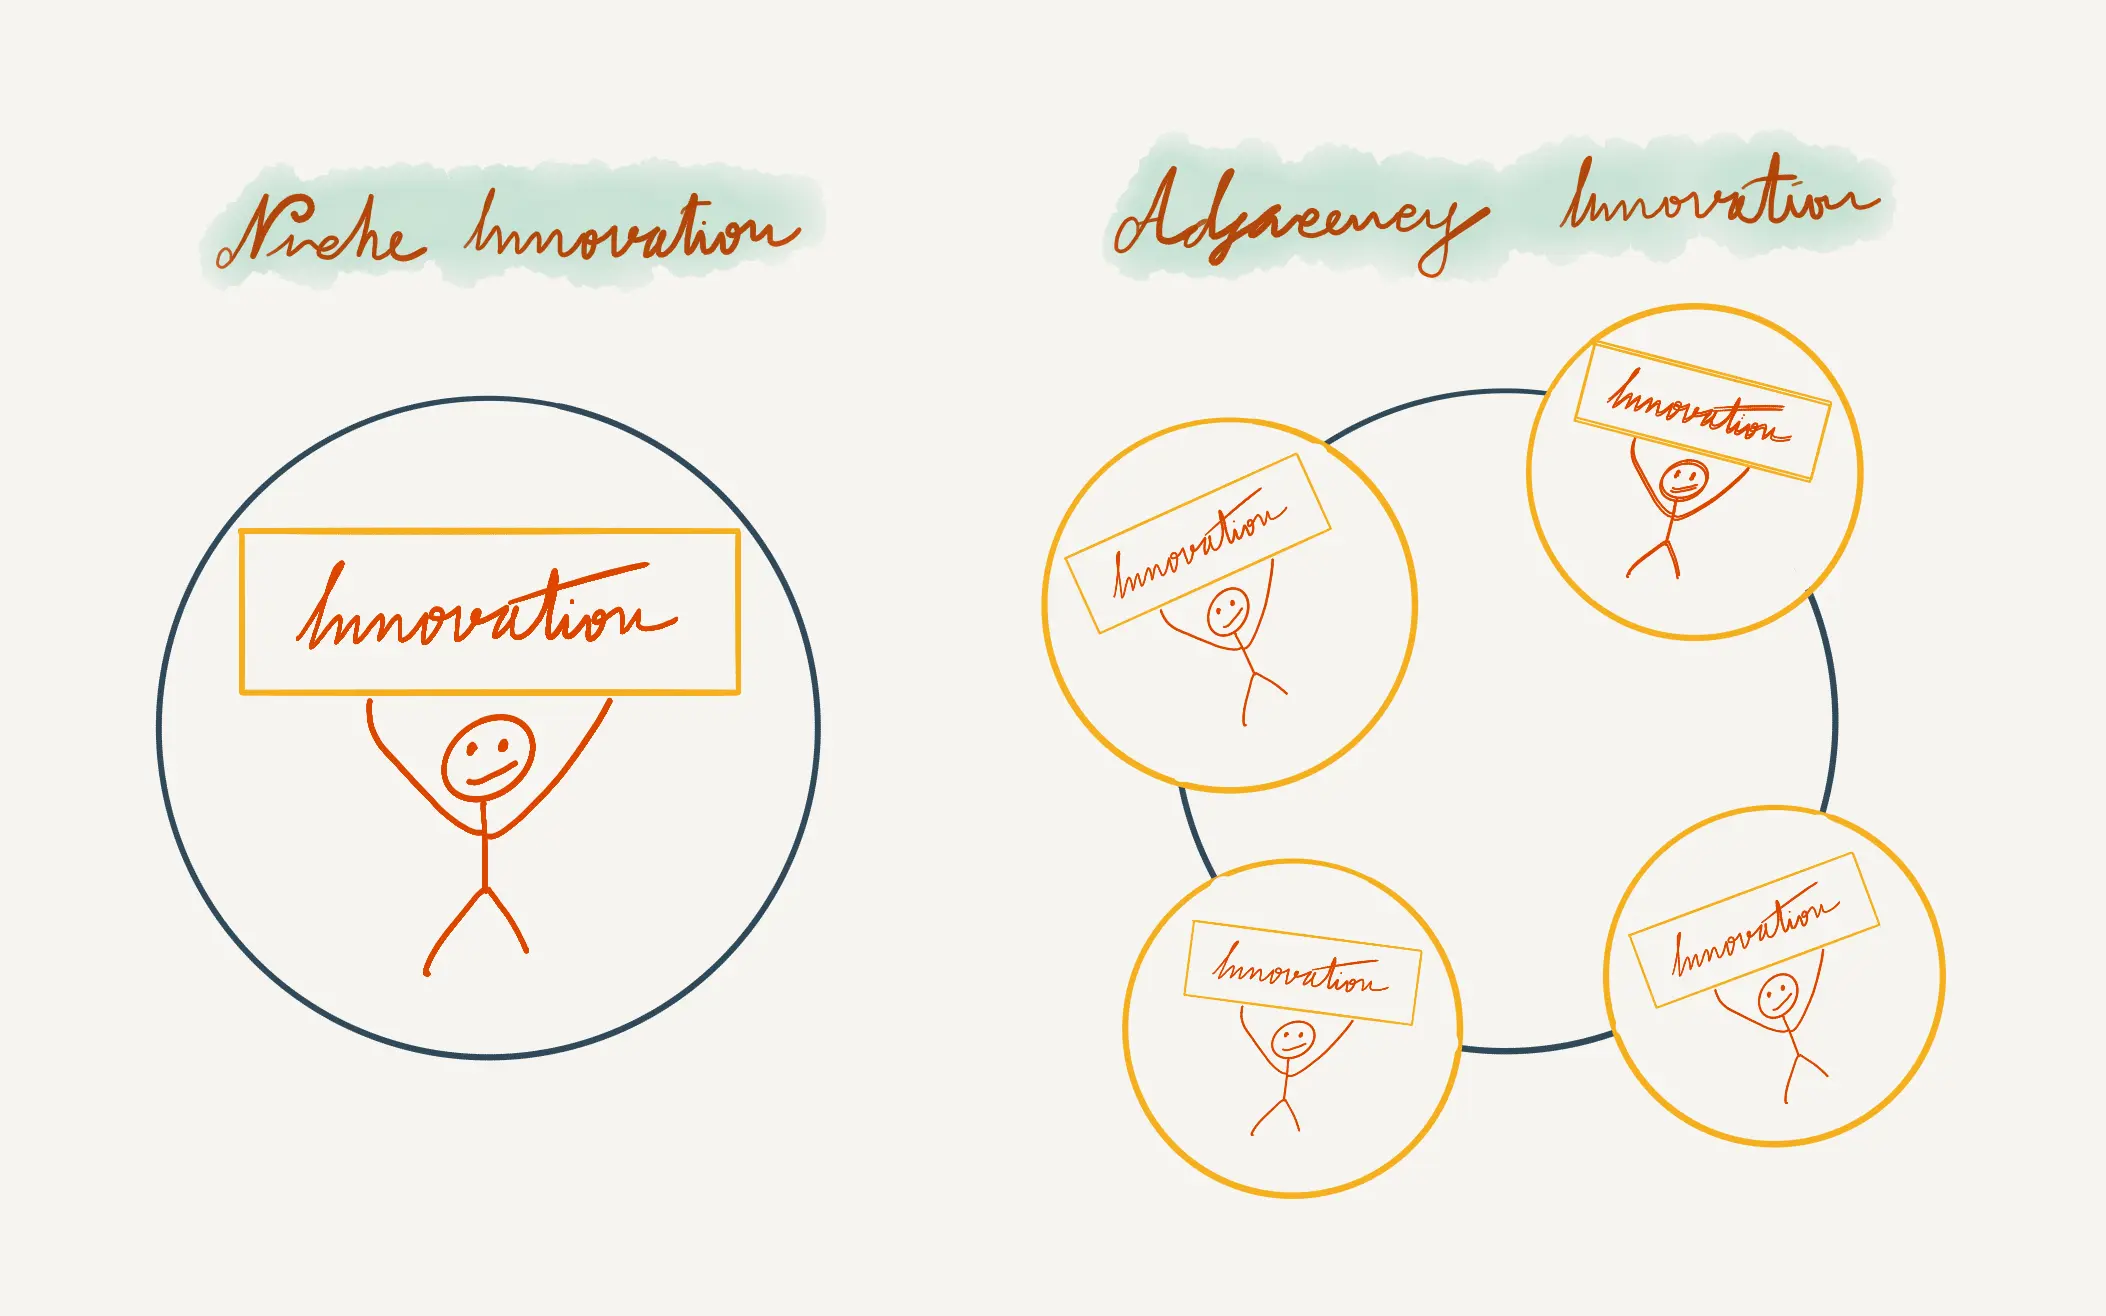 Niche Innovation
Adjacency Innovation
Innovation
Innovation
Innovation
Innovation
Innovation